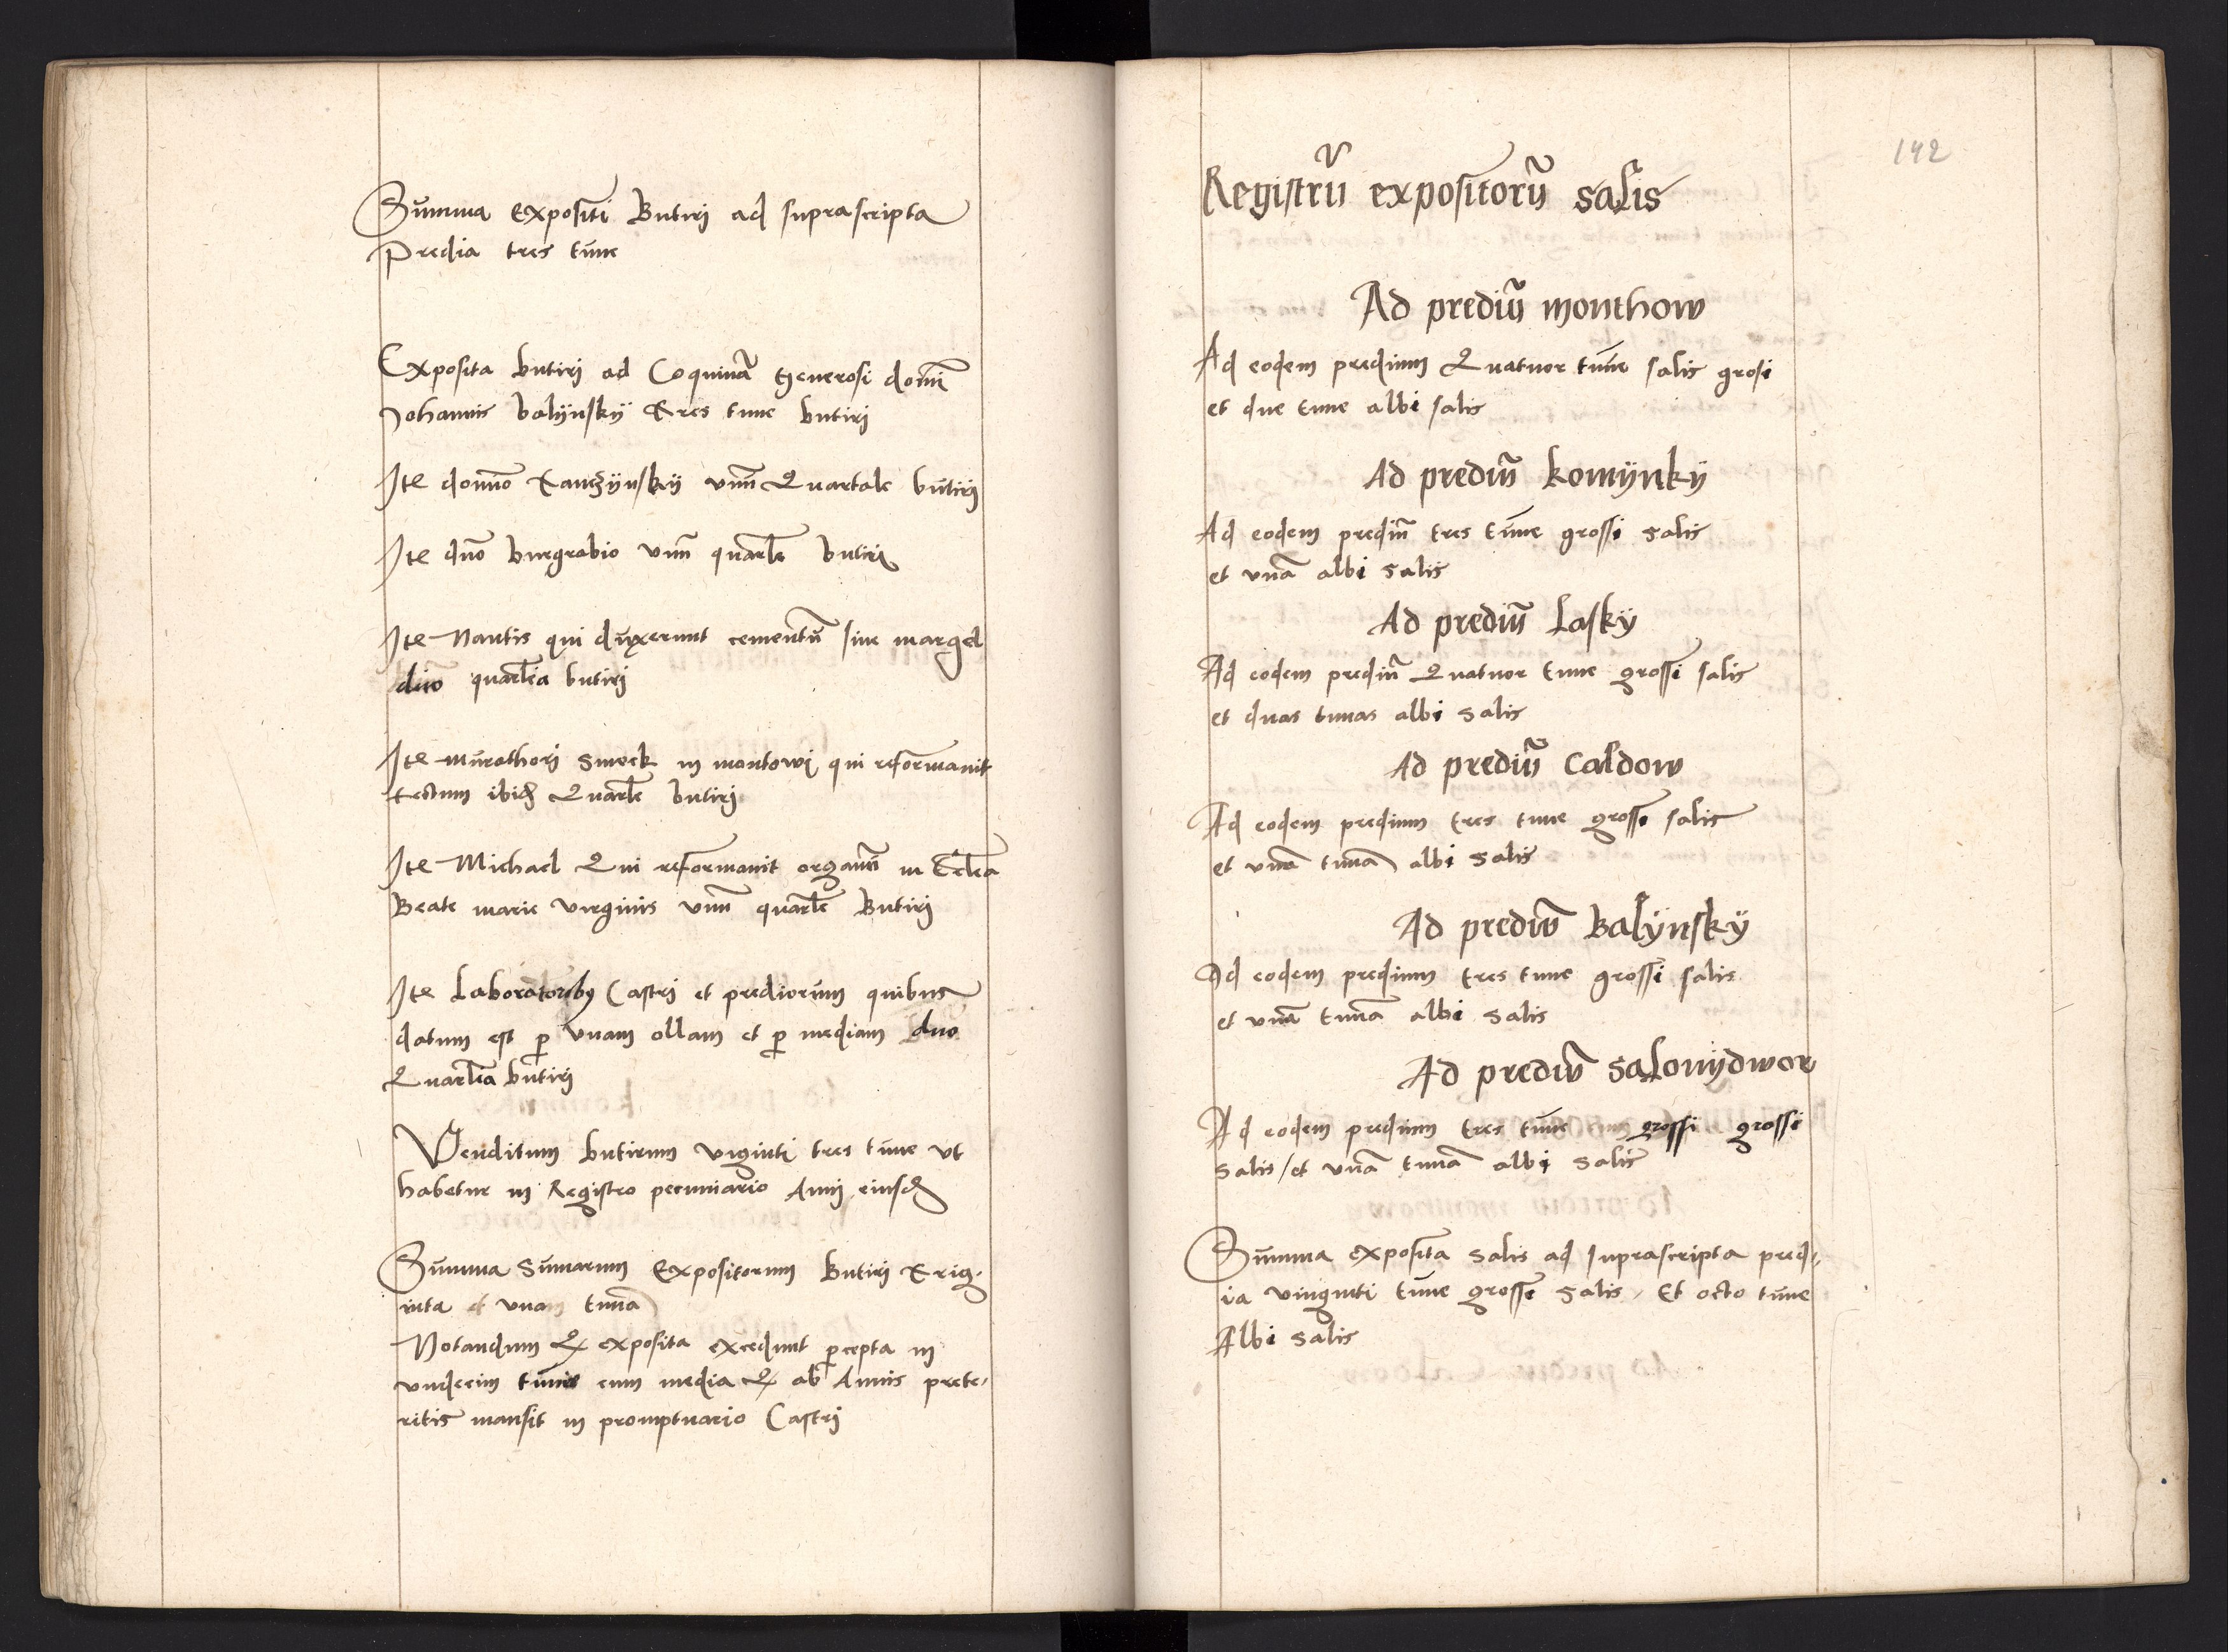 Summa expositi Butirj ad suprascripta
Predia tres tūne
Exposita butirj ad Coquinā generosi domī
Johannis balÿnskÿ tres tune butirj
Itē domno kanczÿnskÿ vnū Quartale butirj
Itē dno burgrabio vnū quartle butirj
Itē Nautis qui duxerunt cementū siue margel
duo quartlia butirj
Itē murathorj smock in montowj qui reformauit
tectum ibid Quartle butirj
Itē Michael Qui reformauit organū in Eclea
Beate marie virginis vnū quartle Butirj
Itē Laboratoriby Castrj et prediorum quibus
datum est p vnam ollam et p mediam duo
Quartlia butirj
Venditum butirum viginti tres tune vt
habetur in Registro pecuniario Annj eiusd
Summa Sumarum Expositorum Butirj Trig-
inta et vnam tunā
Notandum Q exposita excedunt pcepta in
vndecim tunis cum media Q ab Annis prete-
ritis mansit in promptuario Castrj
142
Registrū expositorū salis
Ad prediū monthow
Ad eodem predium Quatuor tūne salis grosi
et due tune albi salis
Ad prediū komÿnkÿ
Ad eodem prediū tres tūne grossi salis
et vnā albi salis
Ad prediū Laskÿ
Ad eodem prediū Quatuor tune grossi salis
et duas tunas albi salis
Ad prediū Caldow
Ad eodem predium tres tune grossi salis
et vnā tunā albi salis
Ad prediū Balÿnskÿ
Ad eodem predium tres tune grossi salis
et vnā tunā albi salis
Ad prediū Salonÿdwor
Ad eodem predium tres tūne grossi grossi
salis / et vnā tunā albi salis
Summa exposita salis ad suprascripta pred-
ia vinginti tūne grossi salis / Et octo tūne
Albi salis